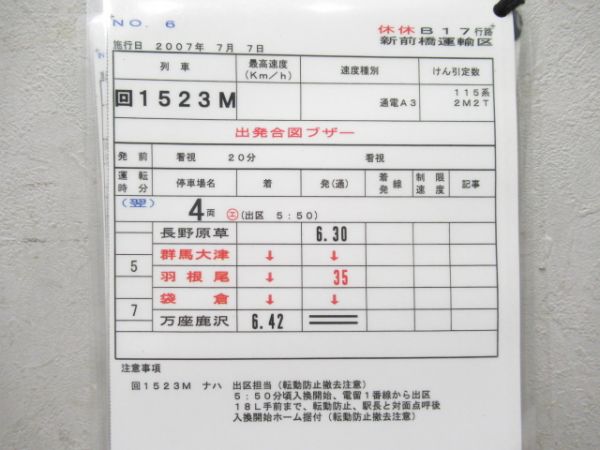 NO. 6
休休B17行路
施行日 2007年 7月 7日
新前橋運輸区
列車 最高速度(Km/h) 速度種別 けん引定数
回1523M 通電A3 115系 2M2T
出発合図ブザー
発前 看視 20分 看視
運転時分 停車場名 着 発(通) 着発線 制限速度 記事
(翌) 4両 ㋓(出区 5:50)
長野原草 6.30
5 群馬大津 ↓ ↓
羽根尾 ↓ 35
7 袋倉 ↓ ↓
万座鹿沢 6.42
注意事項
回1523M ナハ 出区担当(転動防止撤去注意)
5:50分頃入換開始、電留1番線から出区
18L手前まで、転動防止、駅長と対面点呼後
入換開始ホーム据付(転動防止撤去注意)